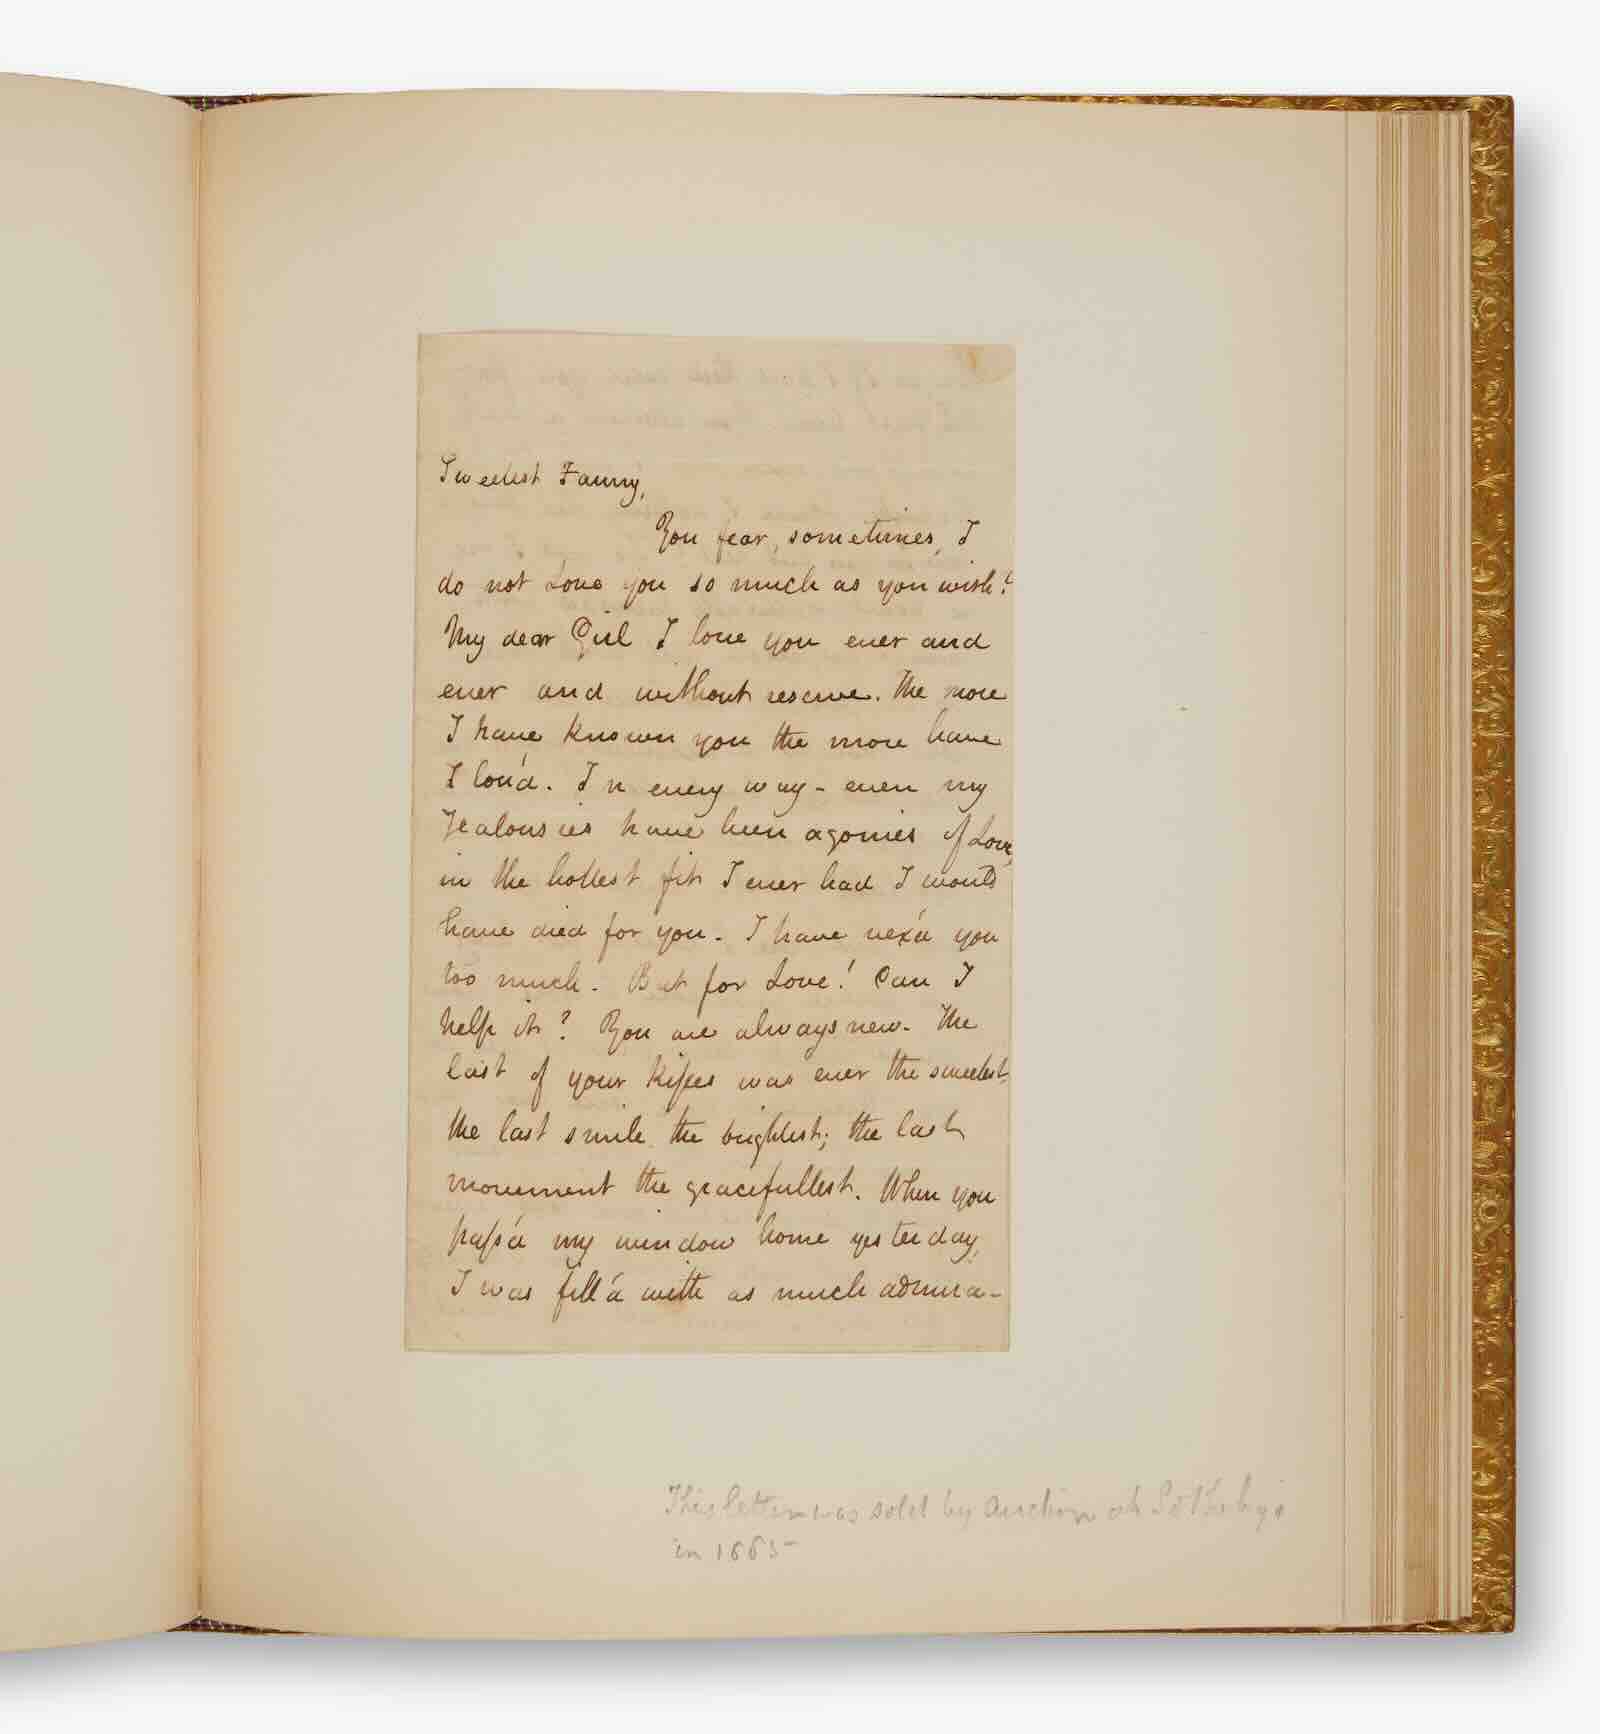 Sweetest Fanny,
You fear, sometimes, I
do not Love you so much as you wish?
My dear Girl I love you ever and
ever and without reserve. The more
I have known you the more have
I lov'd. In every way - even my
Jealousies have been agonies of Love,
in the hottest fit I ever had I would
have died for you. I have vex'd you
too much. But for Love! Can I
help it? You are always new. The
last of your kisses was ever the sweetest;
the last smile the brightest; the last
movement the gracefullest. When you
pass'd my window home yesterday,
I was fill'd with as much admira-
This letter was sold by auction at Sotheby's
in